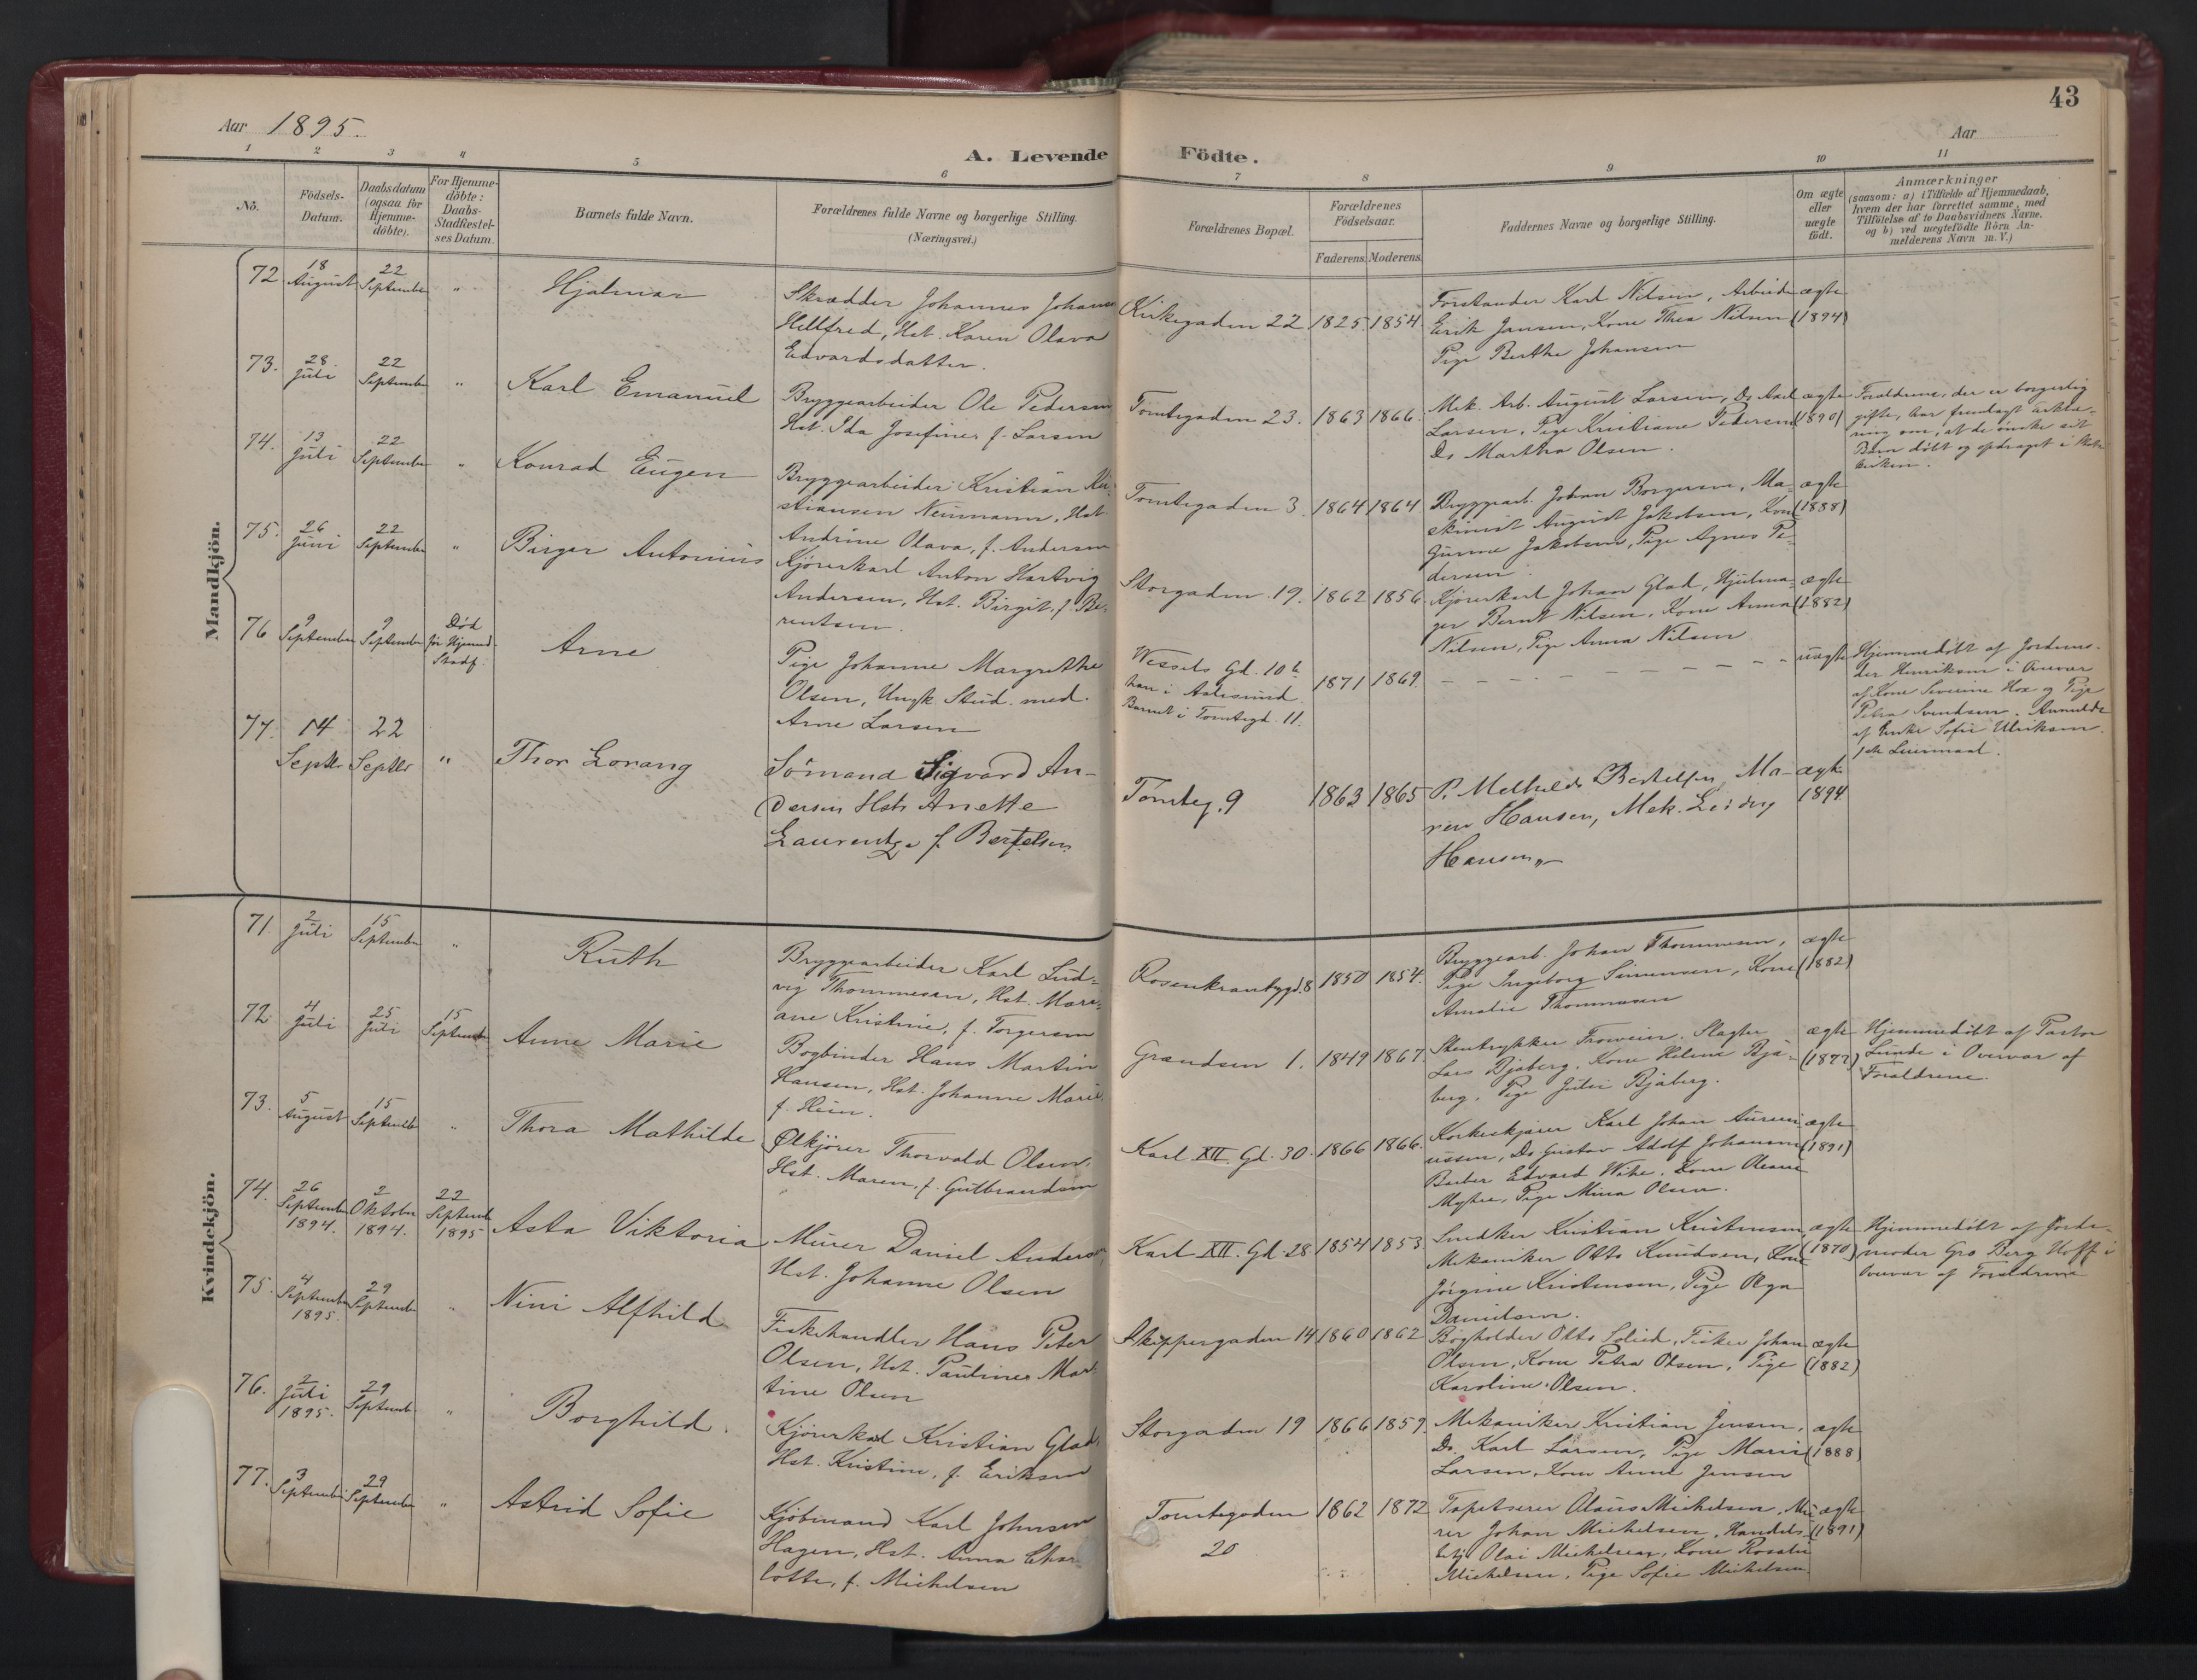 43
Aar 1895.
Aar
A. Levende Födte.
1 2 3 4 5 6 7 8 9 10 11
No.
Födsels-
Datum.
Daabsdatum
(ogsaa for
Hjemme-
döbte).
For Hjemme-
döbte:
Daabs-
Stadfæstel-
ses Datum.
Barnets fulde Navn.
Forældrenes fulde Navne og borgerlige Stilling.
(Næringsvei.)
Forældrenes Bopæl.
Forældrenes
Födselsaar.
Faderens. Moderens.
Faddernes Navne og borgerlige Stilling.
Om ægte
eller
uægte
födt.
Anmærkninger
(saasom: a) i Tilfælde af Hjemmedaab,
hvem der har forrettet samme, med
Tilföielse af to Daabsvidners Navne,
og b) ved uægtefödte Börn An-
melderens Navn m. V.)
Mandkjön.
72 18 August 22 September "
Hjalmar
Skrædder Johannes Johans
Hellfred, Hst. Karen Olava
Edvardsdatter.
Kirkegaden 22 1825. 1854
Forstander Karl Nilsen, Arbeider
Erik Jansen, Kone Thea Nilsen
Pige Berthe Johansen
ægte
(1894)
73. 28 Juli 22 September "
Karl Emanuel
Bryggearbeider Ole Pedersen
Hst. Ida Josefine, f. Larsen
Tomtegaden 23. 1863 1866
Mek. Arb. August Larsen, Ds Axel
Larsen, Pige Kristiane Pedersen
Ds Martha Olsen.
ægte
(1890)
Forældrene, der er borgerlig
gifte, har fremlagt erklæ-
ring om, at de ønske sit
Barn døbt og opdraget i Stats
kirken.
74. 13 Juli 22 September "
Konrad Eugen
Bryggearbeider Kristian Kri-
stiansen Neumann, Hst.
Andrine Olava, f. Andersen
Tomtegaden 3. 1864 1864
Bryggearb. Johan Borgersen, Ma-
skinist August Jakobsen, Kone
Gunine Jakobsen, Pige Agnes Pe-
dersen.
ægte
(1888)
75. 26 Juni 22 September "
Birger Antonius
Kjørerkarl Anton Hartvig
Andersen, Hst. Birgit, f. Be-
rentsen.
Storgaden 19. 1862 1856
Kjørerkarl Johan Glad, Hjulma-
ger Bernt Nilsen, Kone Anna
Nilsen, Pige Anna Nilsen
ægte
(1882)
76 9 September 9 September
Død
før Hjemmed.
Stadf.
Arne
Pige Johanne Margrethe
Olsen, Ungk. Stud. med.
Arne Larsen
Wessels Gd. 10 b
han i Aalesund.
Barnet i Tomtegd. 11.
1871 1869
uægte
Hjemmedøbt af Jordmo-
der Henriksen i Overvær
af Kone Severine Hox og Pige
Petra Svendsen. Anmeldt
af Enke Sofie Ulriksen.
1ste Leiermaal.
77. 14 Septbr 22 Septbr "
Thor Lorang
Sömand Sigvard An-
dersen Hstr Anette
Laurentze f. Bertelsen
Tomteg. 9 1863 1865
P. Methilde Bertelsen Ma-
ren Hansen, Mek. Leidny
Hansen
ægte
1894
Kvindekjön.
71. 2 Juli 15 September "
Ruth
Bryggearbeider Karl Lud-
vig Thommesen, Hst. Mari-
ane Kristine, f. Torgersen
Rosenkrantzgd. 8 1850 1854.
Bryggearb. Johan Thommesen,
Pige Ingeborg Simensen, Kone
Amalie Thommesen
ægte
(1882)
72. 4 Juli 25 Juli 15 September
Anne Marie
Bogbinder Hans Martin
Hansen, Hst. Johanne Marie
f. Hein.
Grændsen 1. 1849 1867.
Stentrykker Froweier. Slagter
Lars Bjaberg, Kone Helene Bja-
berg, Pige Julie Bjaberg.
ægte
Hjemmedøbt af Pastor
Lunde i Overvær af
Forældrene.
73. 5 August 15 September "
Thora Mathilde
Ølkjører Thorvald Olsen,
Hst. Maren, f. Gulbrandsen
Karl XII. Gd. 30. 1866 1866.
Korkeskjærer Karl Johan
Ds Gustav Adolf Johansen
Barber Edvard Wike, Kone Oleane
Myhre, Pige Mina Olsen.
ægte
(1891)
74. 26 September 1894. 2 Oktober 1894. 22 September 1895
Asta Viktoria
Murer Daniel Andersen,
Hst. Johanne Olsen
Karl XII. Gd. 28. 1854 1853
Snedker Kristian Kristensen
Mekaniker Otto Knudsen, Kone
Jørgine Kristensen, Pige Olga
Danielsen.
ægte
(1870)
Hjemmedøbt af Jorde-
moder Gro Berg Hoff i
Overvær af Forældrene
75. 4 September 1895. 29 September "
Nini Alfhild
Fiskehandler Hans Peter
Olsen, Hst. Pauline Mar-
tine Olsen
Skippergaden 14 1860 1862
Bogholder Otto Solied, Fisker Johan
Olsen, Kone Petra Olsen, Pige
Karoline Olsen.
ægte
(1882)
76. 2 Juli 1895. 29 September "
Borghild.
Kjørerkarl Kristian Glad,
Hst. Kristine, f. Eriksen
Storgaden 19 1866 1859.
Mekaniker Kristian Jensen,
Ds. Karl Larsen, Pige Marie
Larsen, Kone Anne Jensen
ægte
(1888)
77. 3 September 29 September "
Astrid Sofie
Kjøbmand Karl Johnsen
Hagen, Hst. Anna Char-
lotte, f. Michelsen
Tomtegaden
20
1862 1872
Tapetserer Olaus Michelsen, Mu-
rer Johan Michelsen, Handels-
betj. Olai Michelsen, Kone Rosalie
Michelsen, Pige Sofie Michelsen
ægte
(1891)